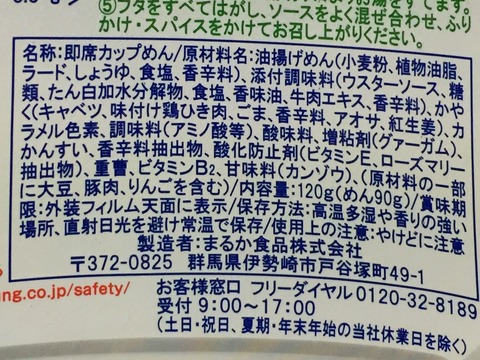 ⑤フタをすべてはがし、ソースをよく混ぜ合わせ、ふり
かけ・スパイスをかけてお召し上がりください。
名称:即席カップめん/原材料名:油揚げめん(小麦粉、植物油脂、
ラード、しょうゆ、食塩、香辛料)、添付調味料(ウスターソース、糖
類、たん白加水分解物、食塩、香味油、牛肉エキス、香辛料)、かや
く(キャベツ、味付け鶏ひき肉、ごま、香辛料、アオサ、紅生姜)、カ
ラメル色素、調味料(アミノ酸等)、酸味料、増粘剤(グァーガム)、
かんすい、香辛料抽出物、酸化防止剤(ビタミンE、ローズマリー
抽出物)、重曹、ビタミンB2、甘味料(カンゾウ)、(原材料の一部
に大豆、豚肉、りんごを含む)/内容量:120g(めん90g)/賞味期
限:外装フィルム天面に表示/保存方法:高温多湿や香りの強い
場所、直射日光を避け常温で保存/使用上の注意:やけどに注意
製造者:まるか食品株式会社
〒372-0825 群馬県伊勢崎市戸谷塚町49-1
ng.co.jp/safety/
お客様窓口 フリーダイヤル 0120-32-8189
受付 9:00〜17:00
(土・日・祝日、夏期・年末年始の当社休業日を除く)